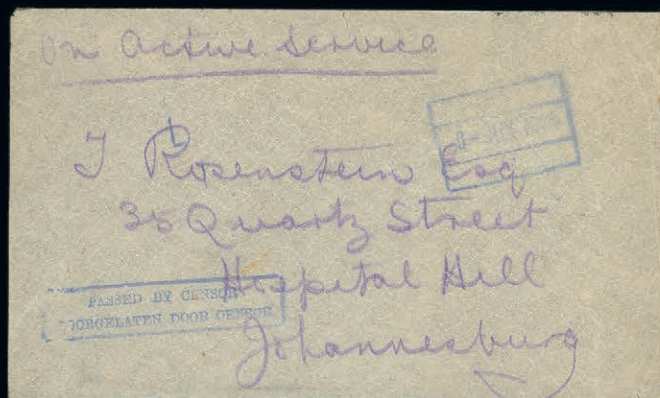 On Active Service
I Rosenstein Esq
35 Quartz Street
Hospital Hill
Johannesburg
PASSED BY CENSOR
DORGELATEN DOOR CENSOR